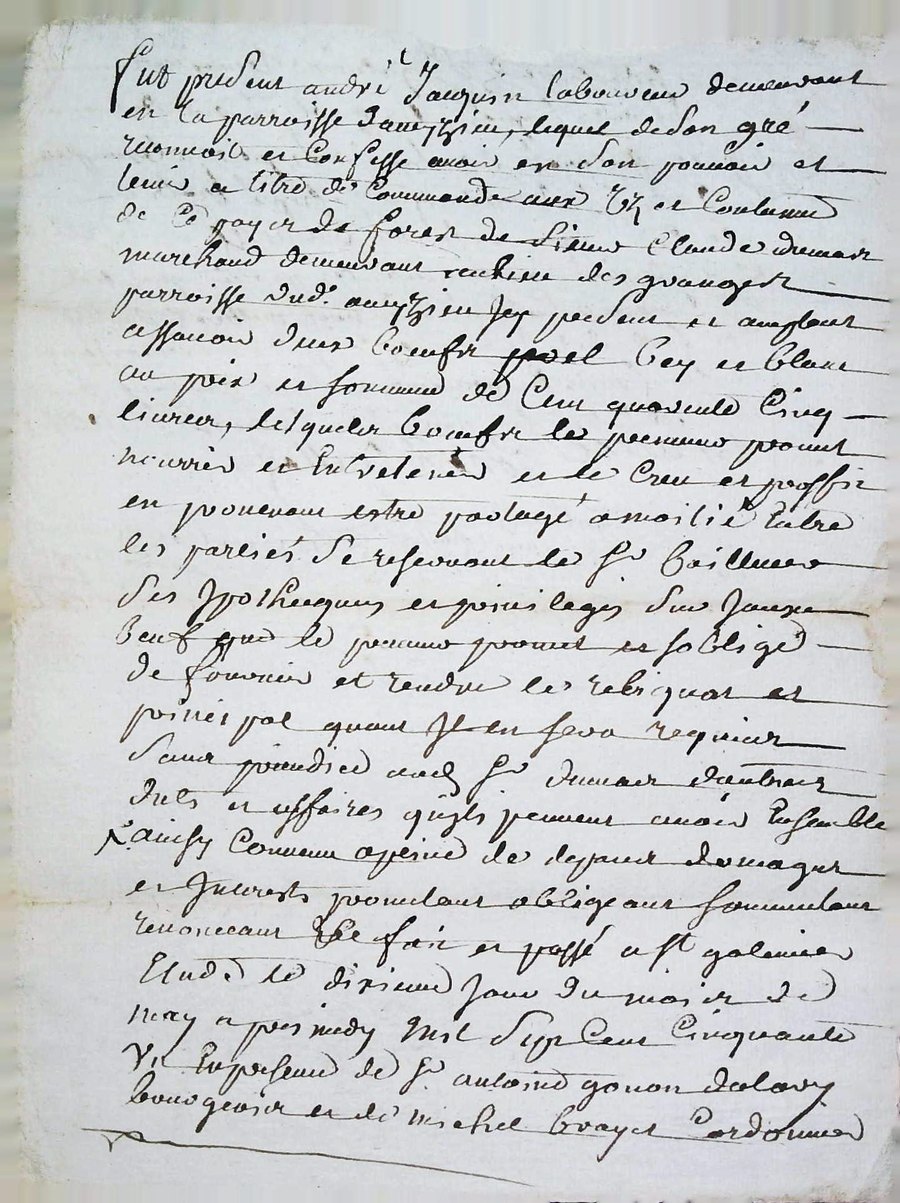 Fut present andré Jacquin laboureur demeurant
en la parroisse d'aveyzieu, lequel de son gré
reconnoit et Confesse avoir en son pouvoir et
tenir a titre de Commande aux us et Coutume
de Ce payer de forest de Sieur Claude dumas
marchand demeurant au lieu des granges
parroisse dud. aveyzieu Icy present et acceptant
assavoir deux boeufs poel bey et blanc
au prix et somme de Cent quarente Cinq
livres, lesquels boeufs le preneur promet
nourrir et Entretenir et le Creu et proffit
en provenant estre partagé a moitié Entre
les parties se reservant le Sr bailleur
ses Ipothecques et privileges sur Iceux
boeuf que le preneur promet et soblige
de fournir et rendre le reliquat et
principal quant Il en sera requier
sans preiudice aud. Sr dumas dautres
dues et affaires quils peuvent avoir Ensemble
ainsy Convenu a peine de depans domages
et Interests promettant obligeant soumettant
renonceant fait et passé a st galmier
Etude le dixieme Jour du mois de
may apres midy mil sept Cent Cinquante
En presence de Sr antoine gonon
bourgeois et de michel brayet Cordonnier